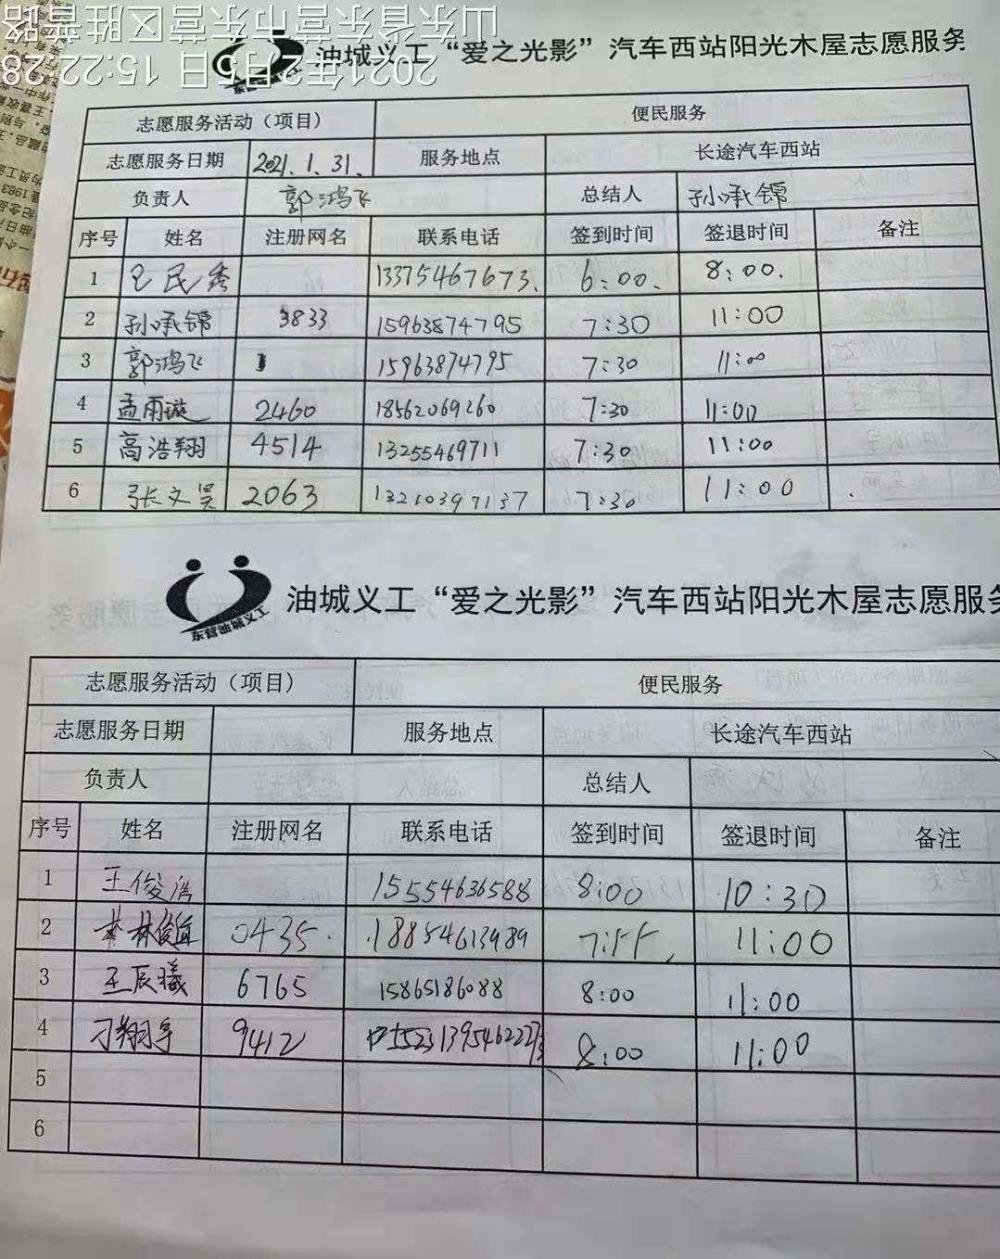 山东省东营市东营区胜营路
2021年2月5日 15:22:28
油城义工“爱之光影”汽车西站阳光木屋志愿服务
志愿服务活动（项目） 便民服务
志愿服务日期 2021.1.31. 服务地点 长途汽车西站
负责人 郭鸿飞 总结人 孙承锦
序号 姓名 注册网名 联系电话 签到时间 签退时间 备注
1 民秀 13375467673. 6:00. 8:00.
2 孙承锦 3833 15963874795 7:30 11:00
3 郭鸿飞 15963874795 7:30 11:00
4 孟雨璇 2460 18562069260 7:30 11:00
5 高浩翔 4514 13255469711 7:30 11:00
6 张文昊 2063 13210397137 7:30 11:00
东营油城义工
油城义工“爱之光影”汽车西站阳光木屋志愿服务
志愿服务活动（项目） 便民服务
志愿服务日期 服务地点 长途汽车西站
负责人 总结人
序号 姓名 注册网名 联系电话 签到时间 签退时间 备注
1 王俊 15554636588 8:00 10:30
2 林俊宜 0435. 18854613989 7:55 11:00
3 王辰曦 6765 15865186088 8:00 11:00
4 刁翔宇 9412 8:00 11:00
5
6